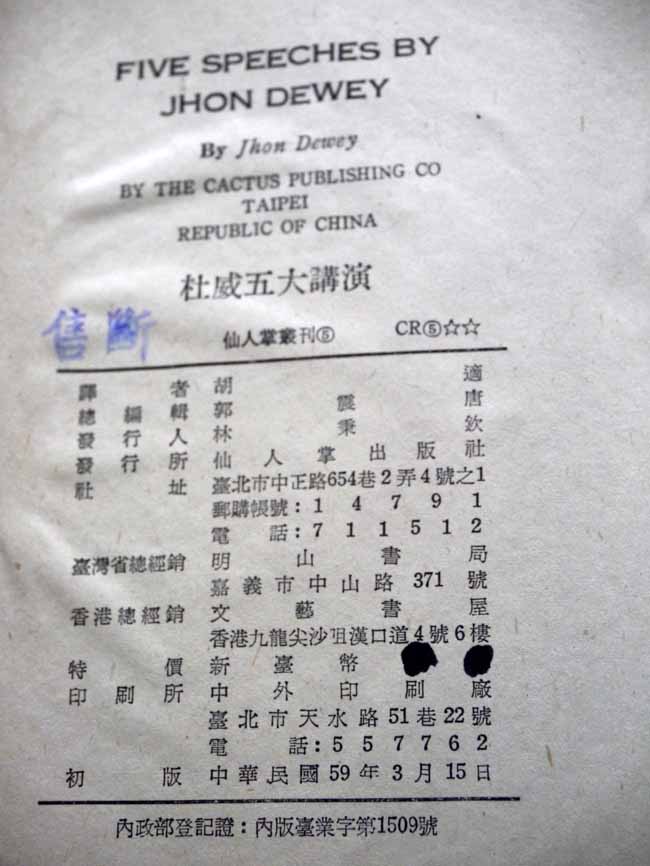 FIVE SPEECHES BY
JHON DEWEY
By Jhon Dewey
BY THE CACTUS PUBLISHING CO
TAIPEI
REPUBLIC OF CHINA
杜威五大講演
售斷
仙人掌叢刊⑤ CR⑤☆☆
譯者 胡適
總編輯 郭震唐
發行人 林秉欽
發行所 仙人掌出版社
社址 臺北市中正路654巷2弄4號之1
郵購帳號:14791
電話:711512
臺灣省總經銷 明山書局
嘉義市中山路371號
香港總經銷 文藝書屋
香港九龍尖沙咀漢口道4號6樓
特價 新臺幣
印刷所 中外印刷廠
臺北市天水路51巷22號
電話:557762
初版 中華民國59年3月15日
內政部登記證:內版臺業字第1509號